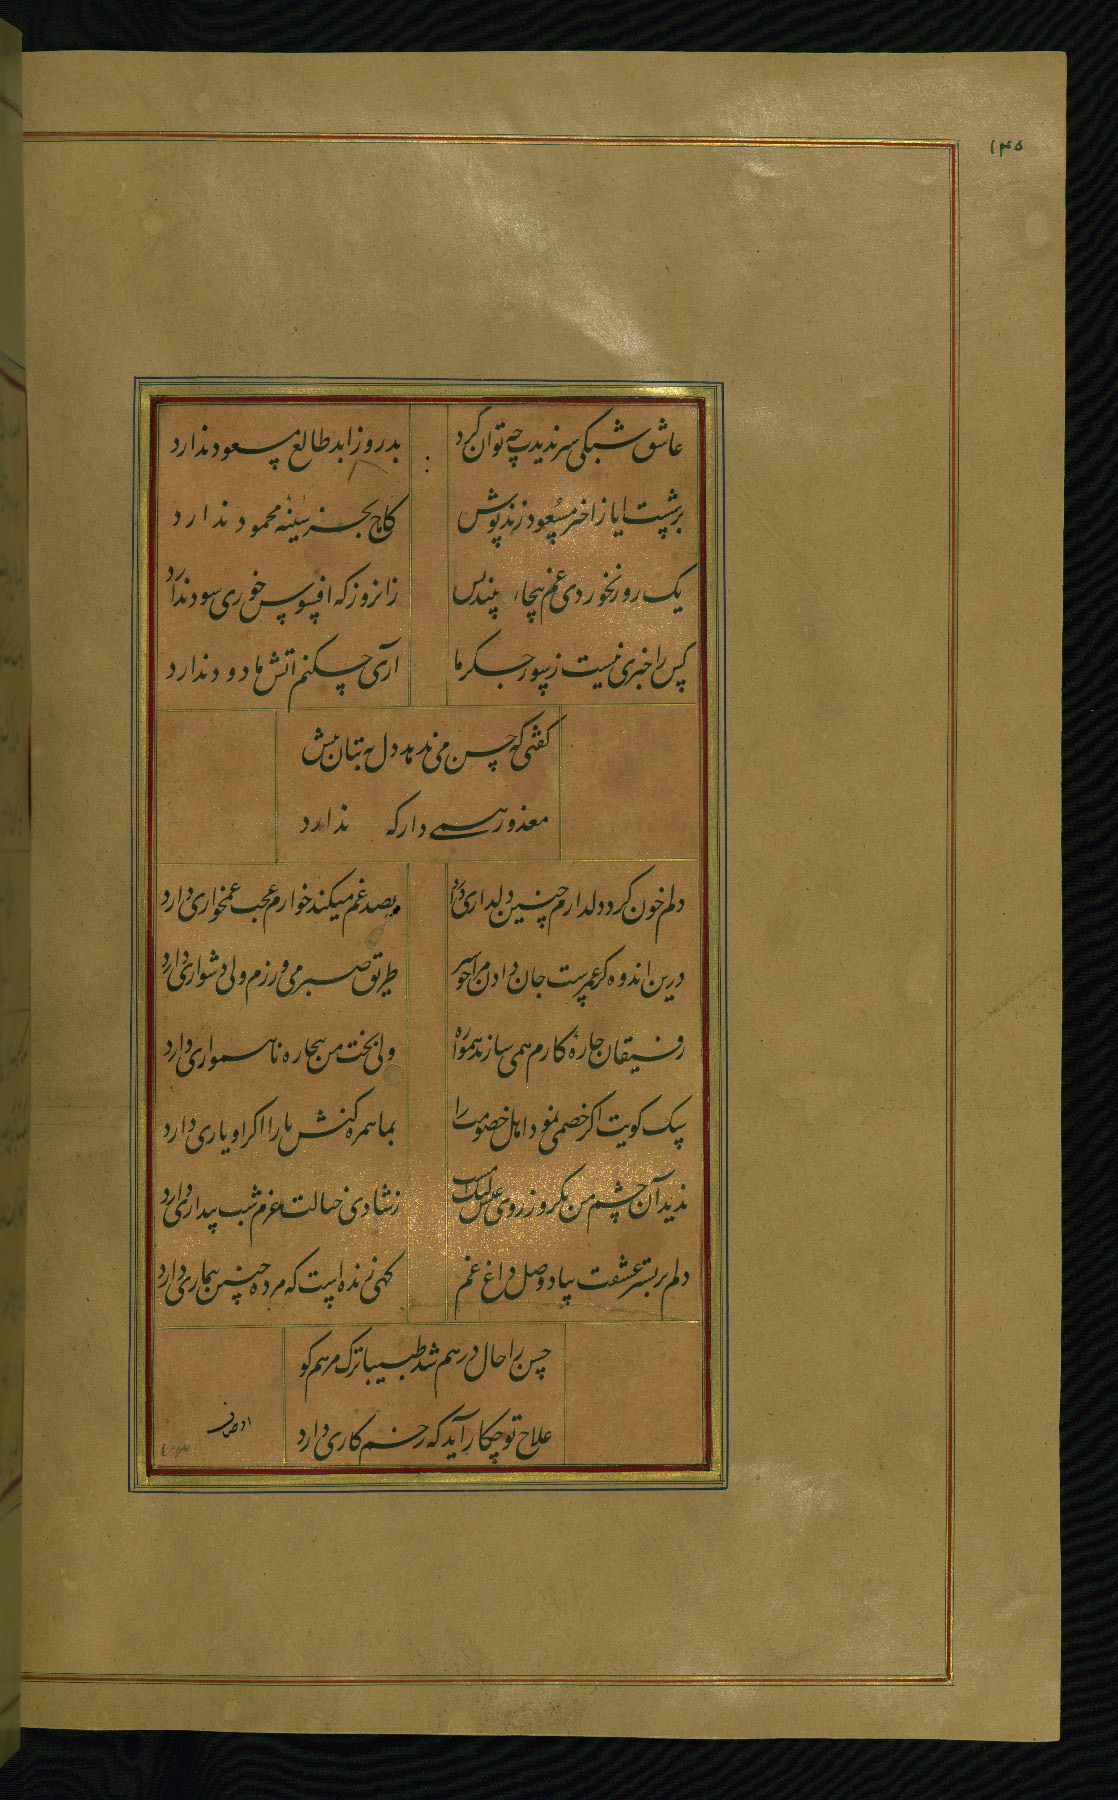 ۱۴۵
عاشق شبکی سر ندید چه توان کرد
بد روز ابد طالع مسعود ندارد
بر پشت ایاز اختر مسعود زند پوش
کاج بجز سینه محمود ندارد
یک روز نخوردی غم بیچاره پسندیس
زانروز که افسوس خوری سود ندارد
کس را خبری نیست ز سوز جکر ما
آری چکنم اتش ما دود ندارد
کفتی که حسن می ندهد دل به بتان بیش
معذور همی دار که ندارد
دلم خون کرد دلدارم چنین دلداری دارد
بصد غم میکند خوارم عجب غمخواری دارد
درین اندوه کر عمرست جان دادن مرا آخر
طریق صبر می ورزم ولی دشواری دارد
رفیقان چاره کارم همی سازند همواره
ولی بخت من بیچاره ناهمواری دارد
سک کویت اکر خصمی نمود اهل خصومت را
بما همره کنش یارا اکر او یاری دارد
ندید آن چشم من یکروز روی عیش
ز شادی خیالت غرم شب بیداری دارد
دلم بر بستر عشقت بیاد وصل داغ غم
کهی زنده است که مرده چنین بیماری دارد
حسن را حال درهم شد طبیبا ترک مرهم کو
علاج تو چکار آید که زخم کاری دارد